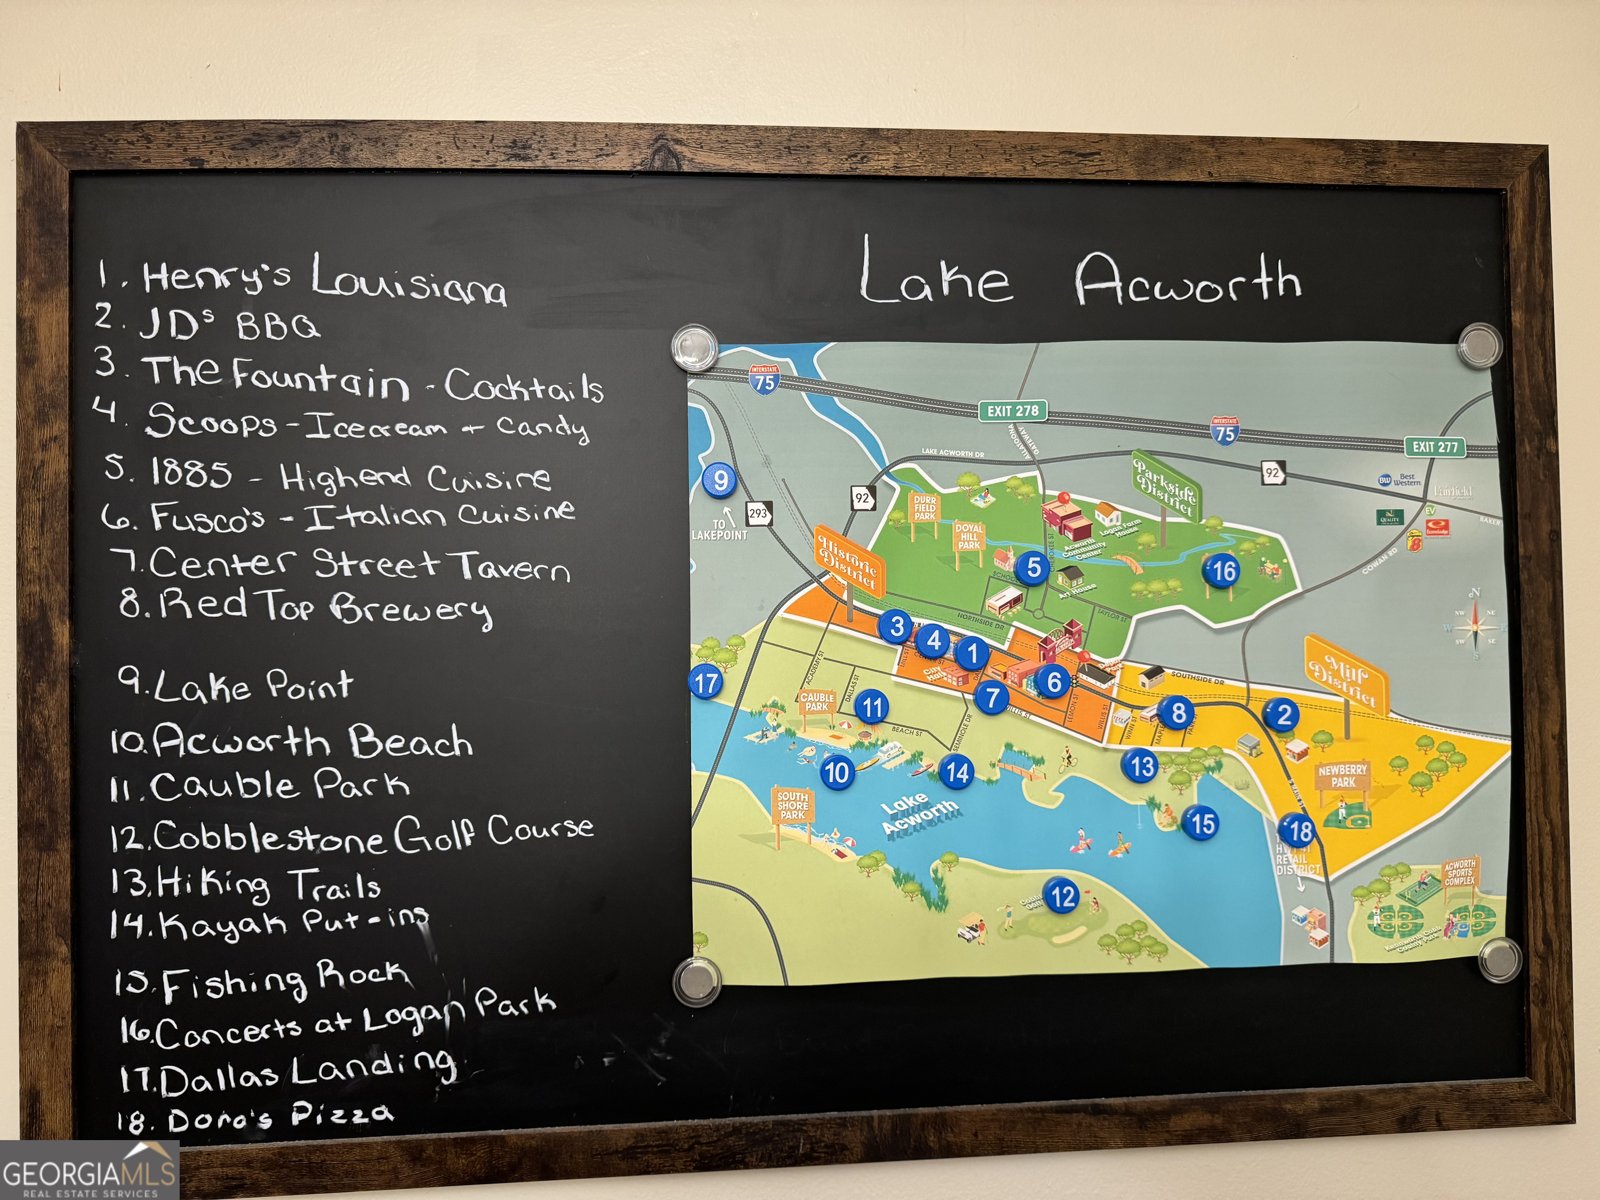 Lake Acworth
1. Henry's Louisiana
2. JDs BBQ
3. The Fountain - Cocktails
4. Scoops - Icecream + Candy
5. 1885 - Highend Cuisine
6. Fusco's - Italian Cuisine
7. Center Street Tavern
8. Red Top Brewery
9. Lake Point
10. Acworth Beach
11. Cauble Park
12. Cobblestone Golf Course
13. Hiking Trails
14. Kayak Put-ins
15. Fishing Rock
16. Concerts at Logan Park
17. Dallas Landing
18. Doro's Pizza
INTERSTATE
75
EXIT 278
INTERSTATE
75
EXIT 277
ALLATOONA
GATEWAY
LAKE ACWORTH DR
92
92
293
9
TO
LAKEPOINT
BW Best
Western
Fairfield
QUALITY
EV
8
BAKER
COWAN RD
Parkside
District
DURR
FIELD
PARK
DOYAL
HILL
PARK
Acworth
Community
Center
Logan Farm
House
Historic
District
5
16
Art House
TAYLOR ST
NORTHSIDE DR
N
NW
NE
W
E
SW
SE
S
3
4
1
City
Hall
6
7
WILLIS ST
LEMON ST
SOUTHSIDE DR
Mill
District
17
ACADEMY ST
DALLAS ST
CAUBLE
PARK
11
BEACH ST
SEMINOLE DR
8
2
10
14
13
Lake
Acworth
SOUTH
SHORE
PARK
15
18
NEWBERRY
PARK
MAIN ST
RETAIL
DISTRICT
12
ACWORTH
SPORTS
COMPLEX
Kennworth Cobb
County Park
GEORGIAMLS
REAL ESTATE SERVICES